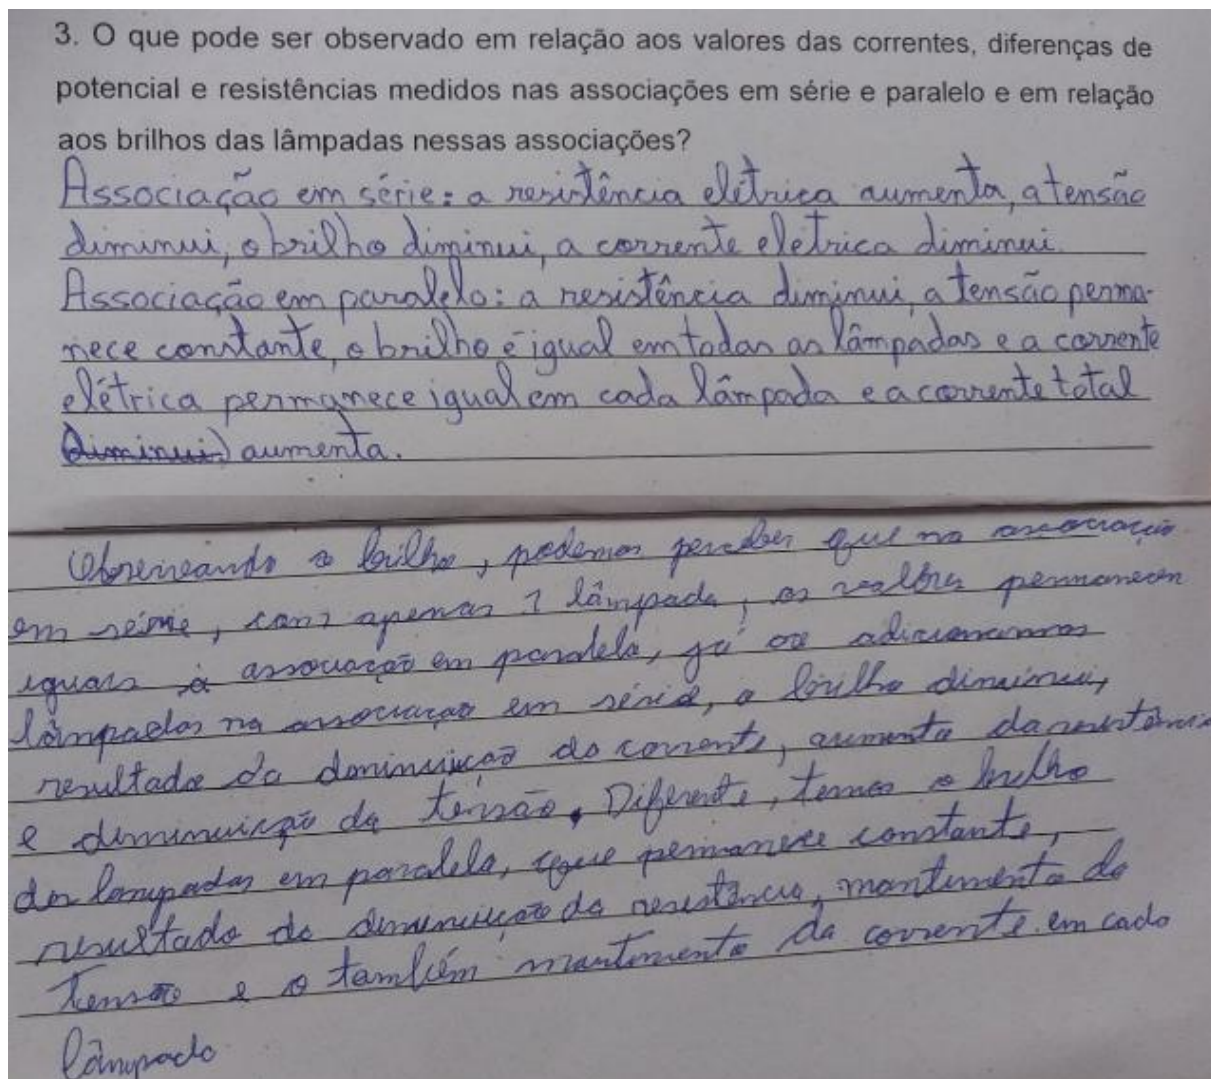 3. O que pode ser observado em relação aos valores das correntes, diferenças de
potencial e resistências medidos nas associações em série e paralelo e em relação
aos brilhos das lâmpadas nessas associações?
Associação em série: a resistência elétrica aumenta, a tensão
diminui, o brilho diminui, a corrente eletrica diminui.
Associação em paralelo: a resistência diminui, a tensão perma-
nece constante, o brilho é igual em todas as lâmpadas e a corrente
elétrica permanece igual em cada lâmpada e a corrente total
(diminui) aumenta.
Observando o brilho, podemos perceber que na associação
em série, com apenas 1 lâmpada, os valores permanecem
iguais à associação em paralelo, já ao adicionarmos
lâmpadas na associação em série, o brilho diminui,
resultado da diminuição da corrente, aumento da resistência
e diminuição da tensão. Diferente, temos o brilho
das lampadas em paralelo, que permanece constante,
resultado da diminuição da resistência, mantimento da
tensão e o também mantimento da corrente em cada
lâmpada